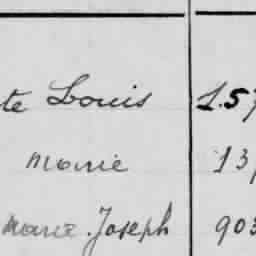 te Louis 1.57
Marie 13
Marie. Joseph 903